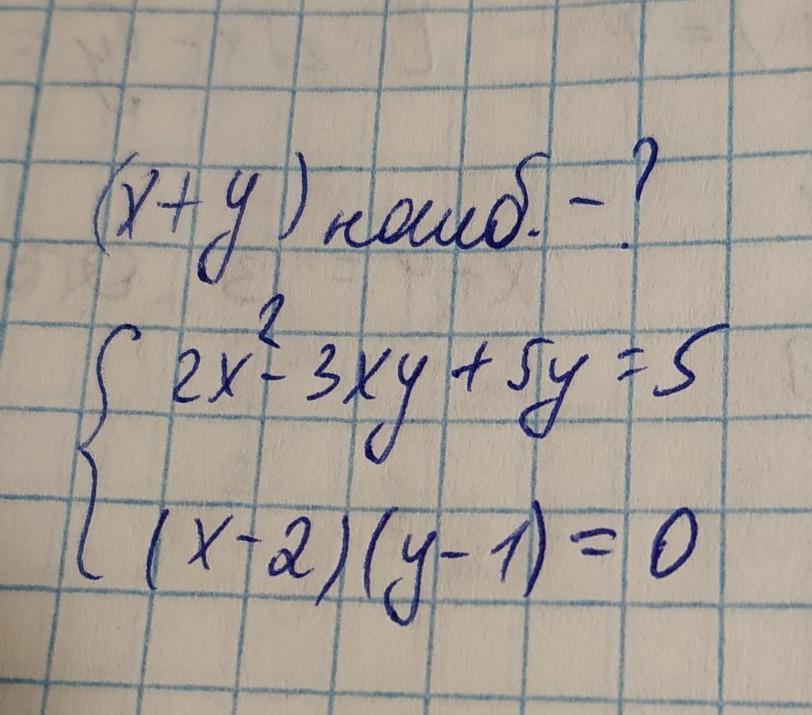 (x+y) наиб. - ?
2x² - 3xy + 5y = 5
(x-2)(y-1) = 0